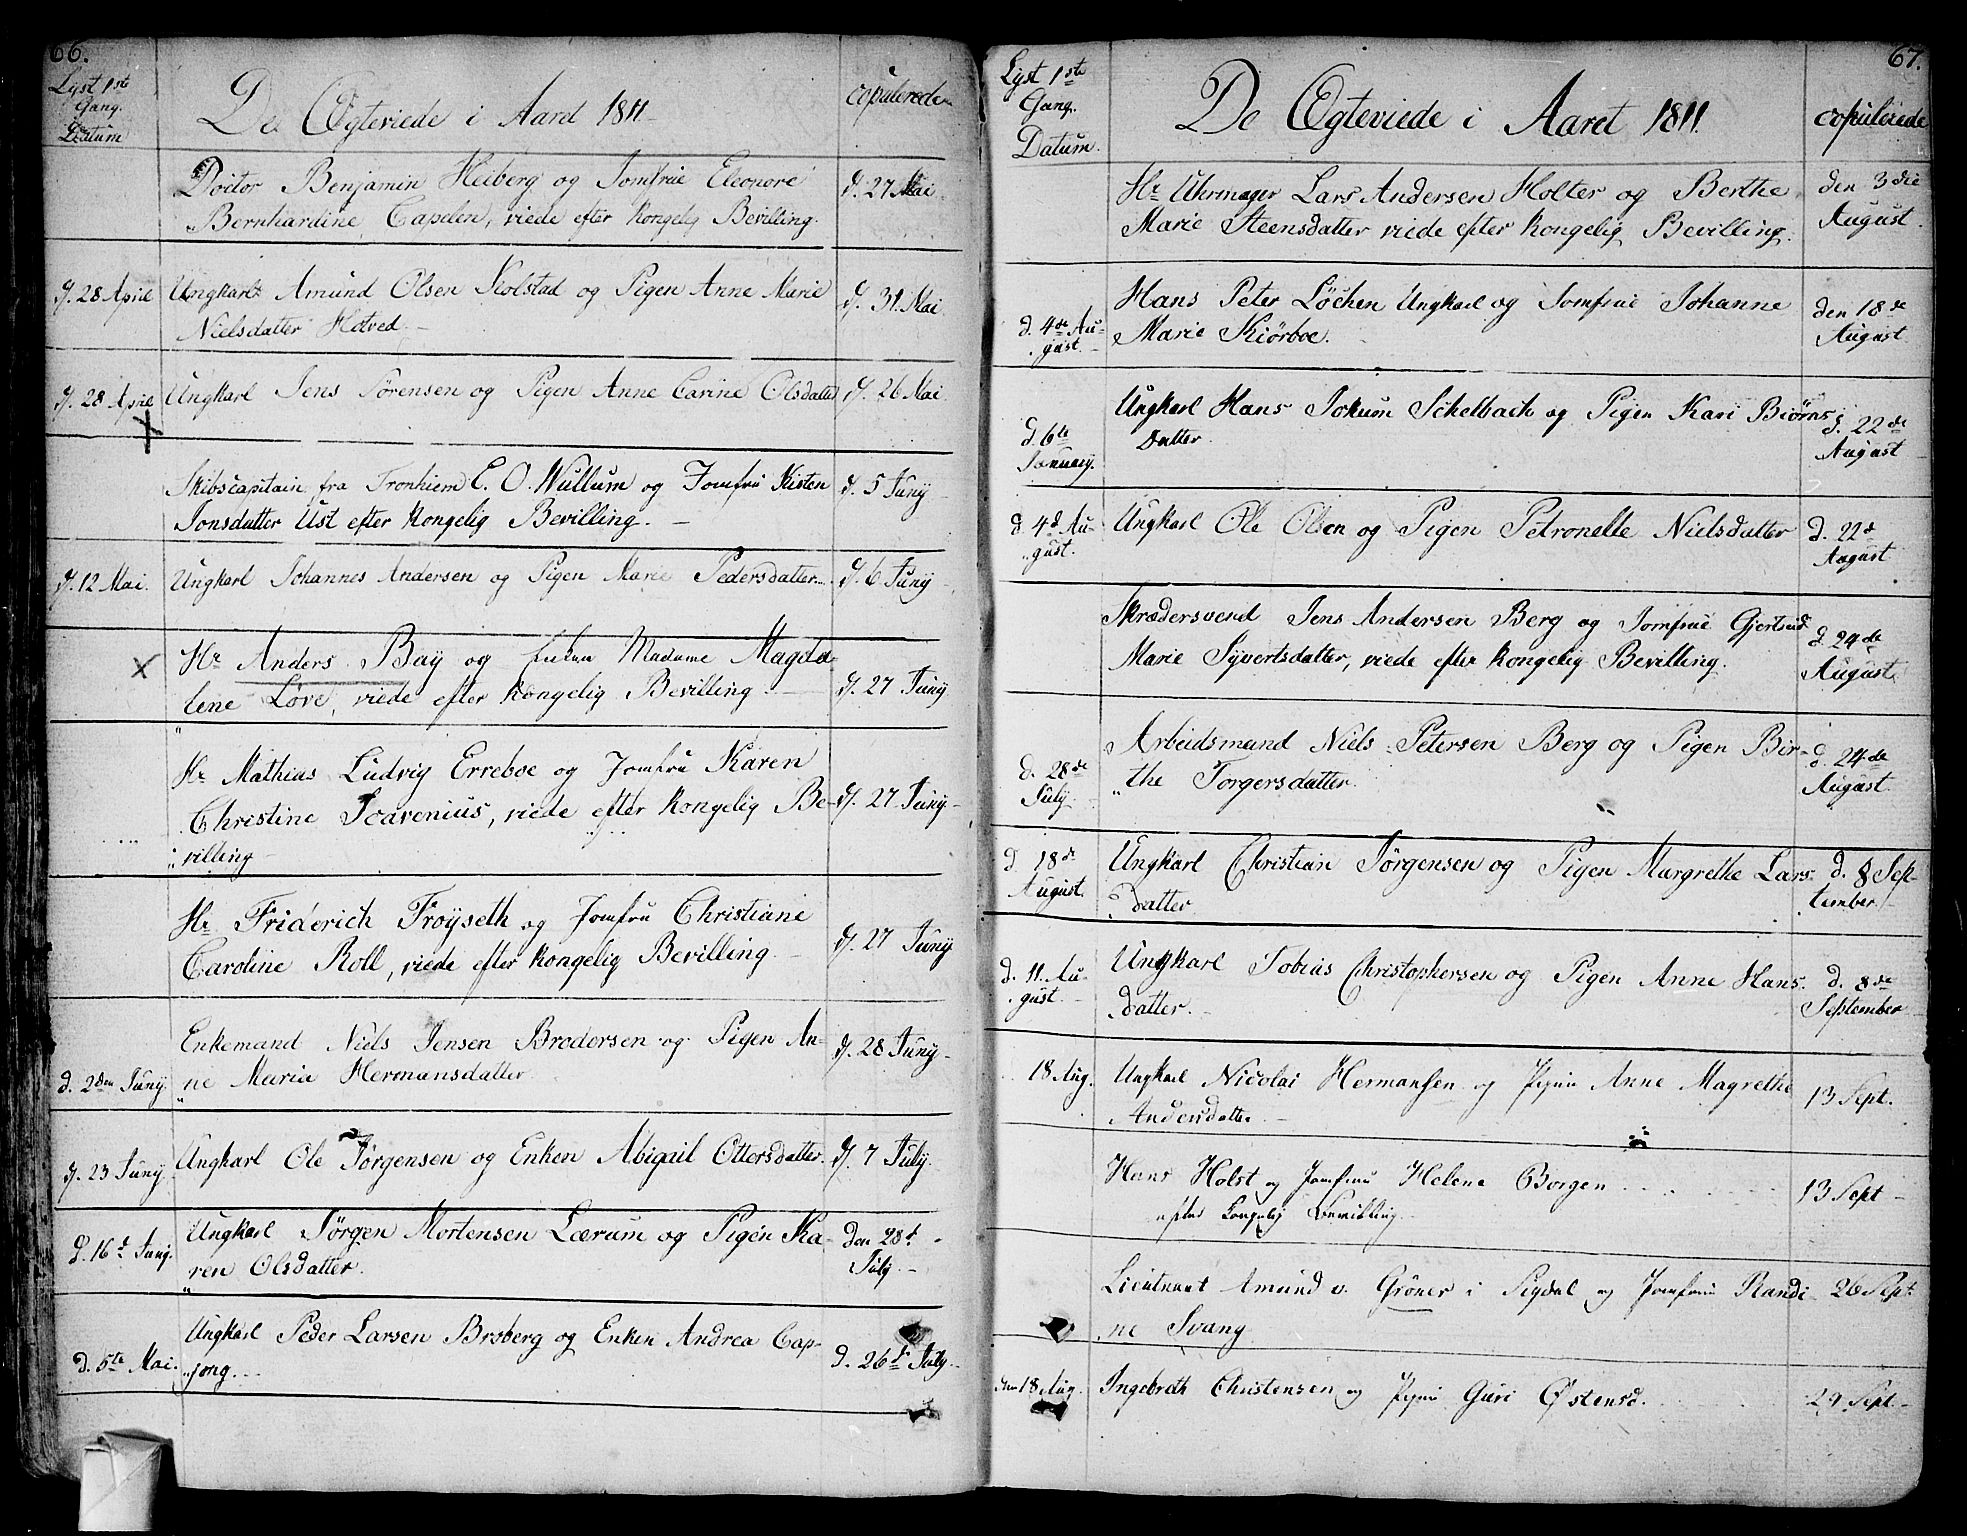 66.
Lyst 1ste
Gang.
Datum
De Ægteviede i Aaret 1811
copulerede
Doctor Benjamin Heiberg og Jomfrue Eleonore
Bernhardine Capelen, viede efter kongelig Bevilling.
d. 27 Mai.
d. 28 April
Ungkarl Amund Olsen Skolstad og Pigen Anne Marie
Nielsdatter Hotved.
d. 31. Mai
d. 28 April
Ungkarl Jens Sørensen og Pigen Anne Carine Olsdatter
d. 26 Mai
Skibscapitain fra Tronhiem E. O. Wullum og Jomfru Kisten
Jonsdatter Ust efter kongelig Bevilling.
d. 5 Juny
d. 12 Mai.
Ungkarl Johannes Andersen og Pigen Marie Pedersdatter
d. 6 Juny
Hr Anders Baÿ og Enken Madame Magda
lene Love, viede efter kongelig Bevilling.
d. 27 Juny
Hr Mathias Ludvig Erreboe og Jomfru Karen
Christine Scavenius, viede efter kongelig Be-
villing
d. 27 Juny
Hr Friderich Troÿseth og Jomfru Christiane
Caroline Roll, viede efter kongelig Bevilling
d. 27 Juny
d. 2den Juny
Enkemand Niels Jensen Brodersen og Pigen An-
ne Maria Hermansdatter
d. 28 Juny
d. 23 Juny
Ungkarl Ole Jørgensen og Enken Abigail Ottersdatter.
d. 7 July.
d. 16d Juny
Ungkarl Jørgen Mortensen Lærum og Pigen Ka-
ren Olsdatter.
den 28d
July
d. 5te Mai.
Ungkarl Peder Larsen Brsberg og Enken Andrea Cap-
jong
d. 26 July
67.
Lyst 1ste
Gang.
Datum.
De Ægteviede i Aaret 1811.
copulerede
Hr Uhrmager Lars Andersen Holter og Berthe
Marie Steensdatter viede efter kongelig Bevilling.
den 3die
August.
d. 4de Au-
gust.
Hans Peter Løchen Ungkarl og Jomfrue Johanne
Marie Kiørboe.
den 18de
August
d. 6te
January.
Ungkarl Hans Jokum Schelbach og Pigen Kari Biørns
datter.
d. 22de
August
d. 4d Au-
gust.
Ungkarl Ole Olsen og Pigen Petronelle Nielsdatter
d. 22d
August
Skrædersvend Jens Andersen Berg og Jomfrue Gjertrud
Marie Syvertsdatter, viede efter kongelig Bevilling.
d. 24de
August
d. 28de
July
Arbeidsmand Niels Petersen Berg og Pigen Bir-
the Torgersdatter.
d. 24de
August
d 18de
August.
Ungkarl Christian Jørgensen og Pigen Margrethe Lars
datter
d. 8 Sep-
tember
d. 11. Au-
gust
Ungkarl Tobias Christophersen og Pigen Anne Hans
datter.
d. 8de
September
18 Aug.
Ungkarl Nicolai Hermansen og Pigen Anne Magrethe
Andersdatter
13 Sept.
Hans Holst og Jomfrue Helene Borgen
efter kongelig Bevilling
13 Sept
Lieutnant Amund v. Grøner i Sigdal og Jomfrue Randi
ne Svang
26 Sept.
den 18 Aug.
Ingebreth Christensen og Pigen Guri Østensd.
29 Sept.